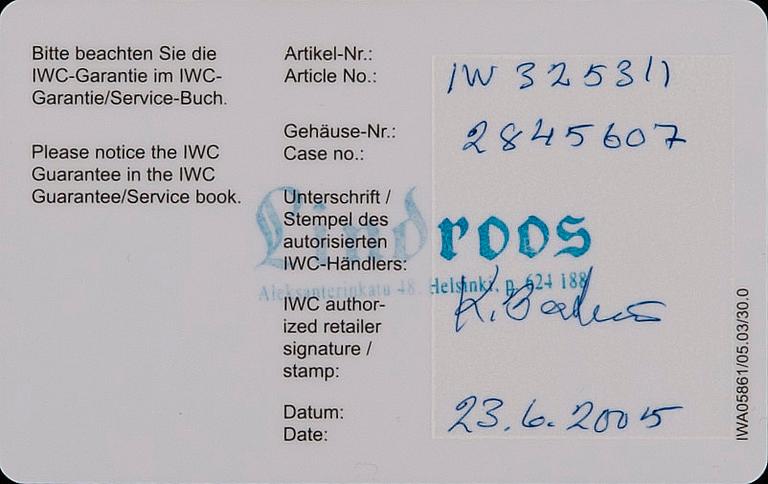 Bitte beachten Sie die
IWC-Garantie im IWC-
Garantie/Service-Buch.
Please notice the IWC
Guarantee in the IWC
Guarantee/Service book.
Artikel-Nr.:
Article No.:
IW 325311
Gehäuse-Nr.:
Case no.:
2845607
Unterschrift /
Stempel des
autorisierten
IWC-Händlers:
Lindroos
Aleksanterinkatu 48, Helsinki, p. 624 188
IWC author-
ized retailer
signature /
stamp:
K.
Datum:
Date:
23.6.2005
IWA05861/05.03/30.0